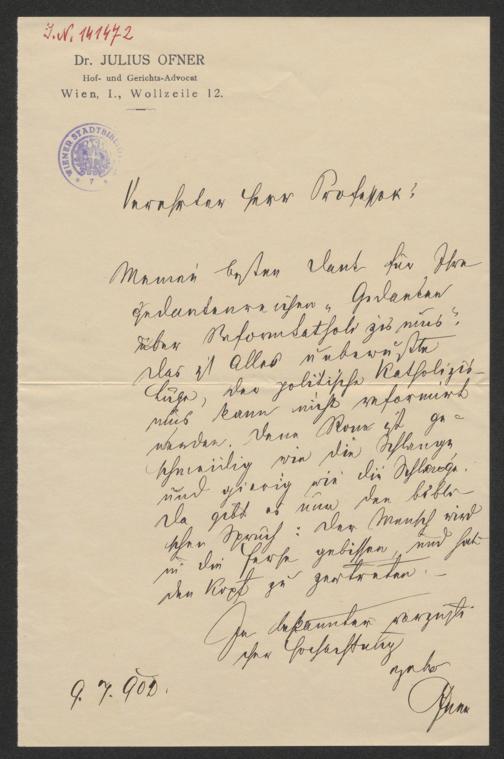 I.N. 141472
Dr. JULIUS OFNER
Hof- und Gerichts-Advocat
Wien, I., Wollzeile 12.
WIENER STADTBIBLIOTHEK
Verehrter Herr Professor!
Meinen besten Dank für Ihre
gedankenreichen „Gedanken
über Reformkatholizismus".
Das ist Alles unbewußte
Lüge, der politische Katholizis-
mus kann nicht reformirt
werden. Denn Rom ist ge-
schmeidig wie die Schlange
und gierig wie die Schlange.
Da gibt es nur den bibli-
schen Spruch: Der Mensch wird
in die Ferse gebissen und hat
den Kopf zu zertreten. –
In bekannter vorzügli-
cher Hochachtung
Ofner
9.7.902.